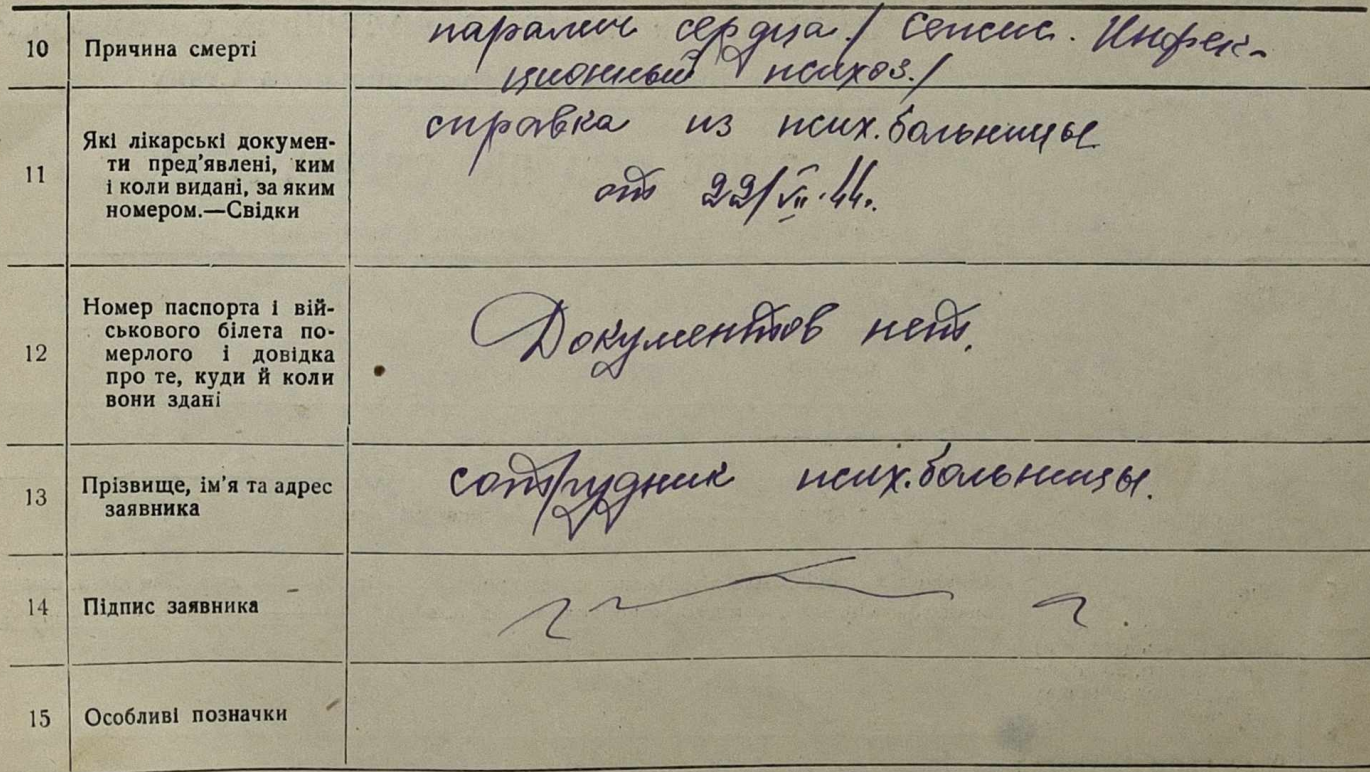 10 Причина смерті паралич сердца / Сепсис. Инфек-
ционный психоз./
11 Які лікарські докумен-
ти пред'явлені, ким
і коли видані, за яким
номером.—Свідки
справка из псих.больницы
от 22/VII.44.
12 Номер паспорта і вій-
ськового білета по-
мерлого і довідка
про те, куди й коли
вони здані
Документов нет.
13 Прізвище, ім'я та адрес
заявника
сотрудник псих.больницы.
14 Підпис заявника
15 Особливі позначки